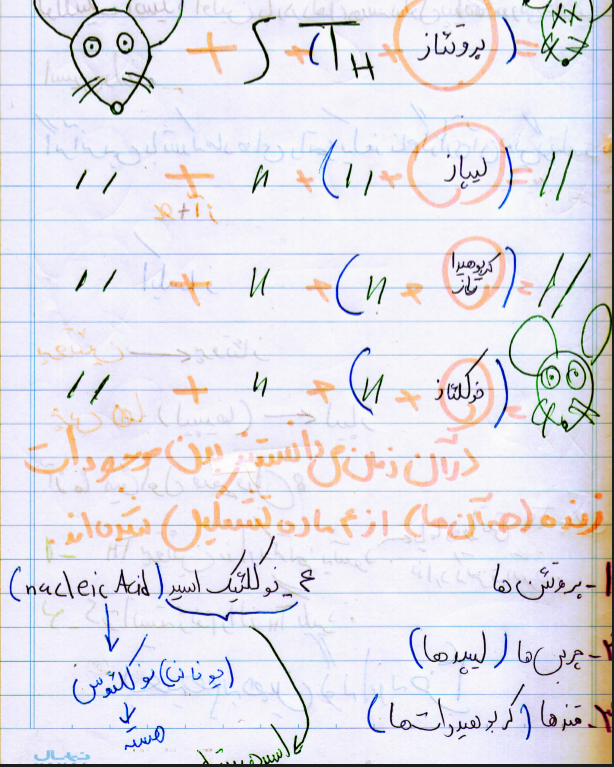 = (پروتئاز + TH) + S +
〃 = (لیپاز + 〃) + 〃 + 〃
〃 = (کربوهیدا
تاز + 〃) + 〃 + 〃
= (نوکلئاز + 〃) + 〃 + 〃
در آن زمان می دانستند بدن موجودات
زنده (همه آن ها) از ۴ ماده تشکیل شده اند.
۱- پروتئین ها
۲- چربی ها (لیپیدها)
۳- قندها (کربوهیدرات ها)
۴- نوکلئیک اسید (nucleic Acid)
(یونانی) نوکلئوس
هسته